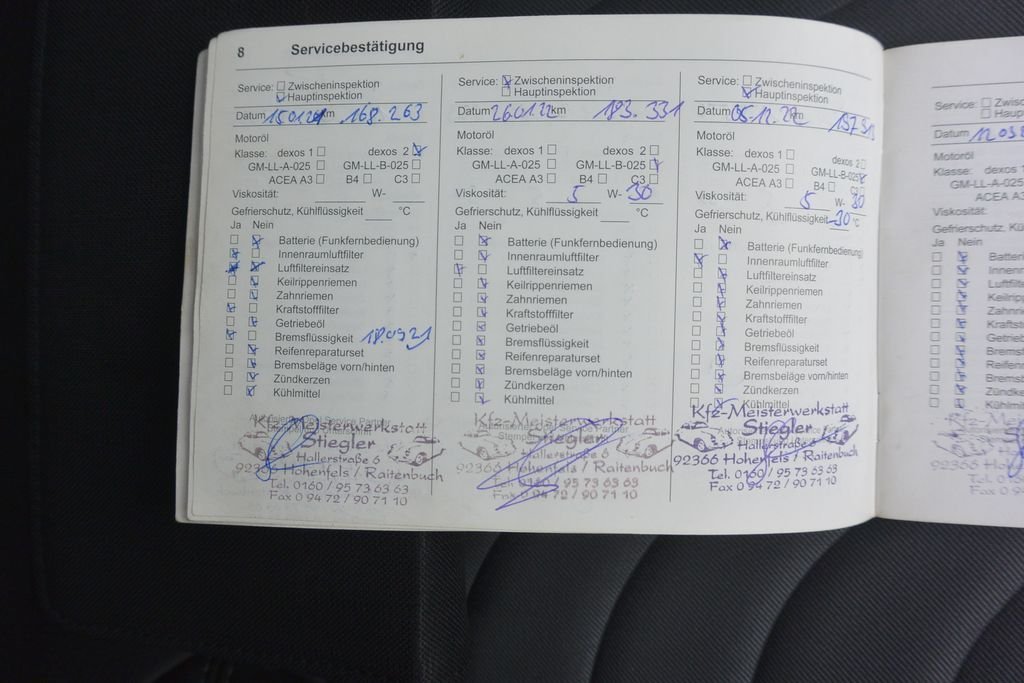 8 Servicebestätigung
Service: Zwischeninspektion
Hauptinspektion
Datum km 168.263
Motoröl
Klasse: dexos 1 dexos 2
GM-LL-A-025 GM-LL-B-025
ACEA A3 B4 C3
Viskosität: W-
Gefrierschutz, Kühlflüssigkeit °C
Ja Nein
Batterie (Funkfernbedienung)
Innenraumluftfilter
Luftfiltereinsatz
Keilrippenriemen
Zahnriemen
Kraftstofffilter
Getriebeöl
Bremsflüssigkeit 18.09.21
Reifenreparaturset
Bremsbeläge vorn/hinten
Zündkerzen
Kühlmittel
Stiegler
Hallerstraße 6
Hohenfels / Raitenbuch
Tel. 0160 / 95 73 63 63
Fax 0 94 72 / 90 71 10
Service: Zwischeninspektion
Hauptinspektion
Datum 26.01.22 km 183.331
Motoröl
Klasse: dexos 1 dexos 2
GM-LL-A-025 GM-LL-B-025
ACEA A3 B4 C3
Viskosität: 5 W- 30
Gefrierschutz, Kühlflüssigkeit °C
Ja Nein
Batterie (Funkfernbedienung)
Innenraumluftfilter
Luftfiltereinsatz
Keilrippenriemen
Zahnriemen
Kraftstofffilter
Getriebeöl
Bremsflüssigkeit
Reifenreparaturset
Bremsbeläge vorn/hinten
Zündkerzen
Kühlmittel
Kfz-Meisterwerkstatt
Stiegler
Hallerstraße 6
92366 Hohenfels / Raitenbuch
Tel. 0160 / 95 73 63 63
Fax 0 94 72 / 90 71 10
Service: Zwischeninspektion
Hauptinspektion
Datum 05.12.22 km
Motoröl
Klasse: dexos 1 dexos 2
GM-LL-A-025 GM-LL-B-025
ACEA A3 B4 C3
Viskosität: 5 W- 30
Gefrierschutz, Kühlflüssigkeit -30 °C
Ja Nein
Batterie (Funkfernbedienung)
Innenraumluftfilter
Luftfiltereinsatz
Keilrippenriemen
Zahnriemen
Kraftstofffilter
Getriebeöl
Bremsflüssigkeit
Reifenreparaturset
Bremsbeläge vorn/hinten
Zündkerzen
Kühlmittel
Kfz-Meisterwerkstatt
Stiegler
Hallerstraße 6
92366 Hohenfels / Raitenbuch
Tel. 0160 / 95 73 63 63
Fax 0 94 72 / 90 71 10
Service:
Datum
Motoröl
Klasse: dexos
GM-LL-A-025
ACEA A3
Viskosität:
Gefrierschutz,
Ja Nein